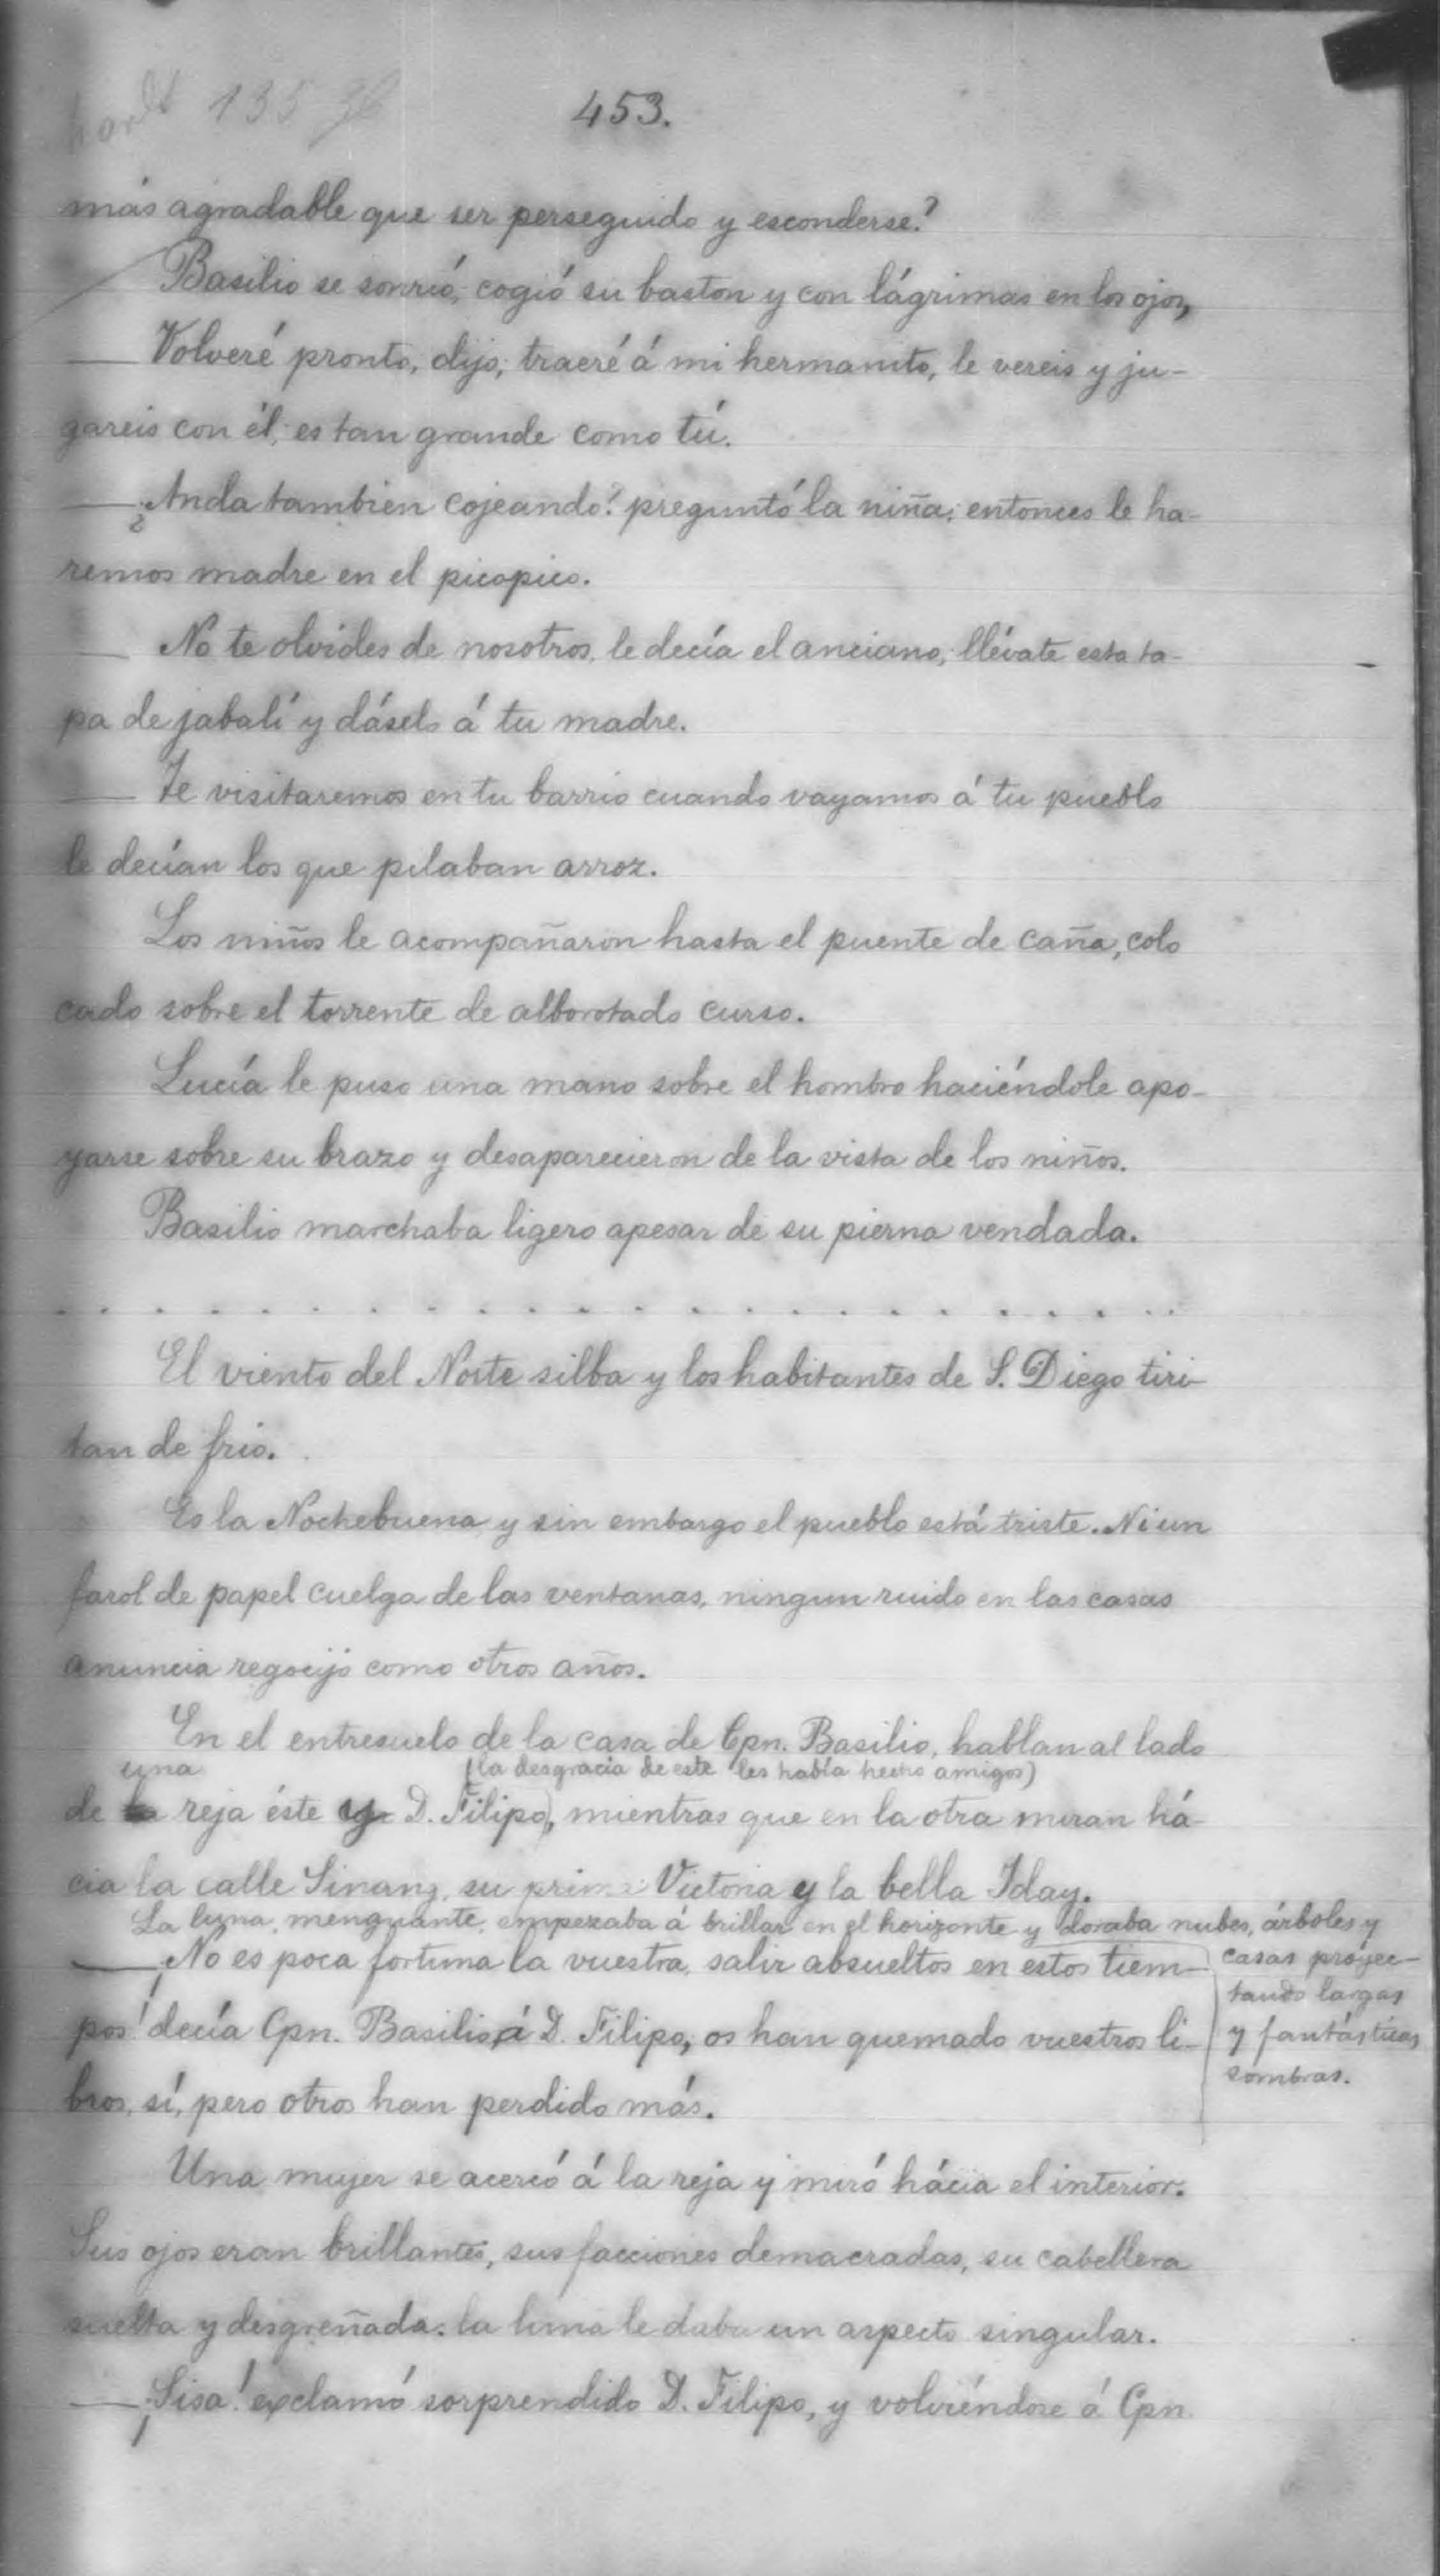 453.
más agradable que ser perseguido y esconderse?
Basilio se sonrió, cogió su baston y con lágrimas en los ojos,
— Volveré pronto, dijo; traeré á mi hermanito, le vereis y ju-
gareis con él; es tan grande como tú.
— ¿Anda tambien cojeando? preguntó la niña; entonces le ha-
remos madre en el picopico.
— No te olvides de nosotros, le decía el anciano; llévate esta ta-
pa de jabalí y dáselo á tu madre.
— Te visitaremos en tu barrio cuando vayamos á tu pueblo
le decían los que pilaban arroz.
Los niños le acompañaron hasta el puente de caña, colo
cado sobre el torrente de alborotado curso.
Lucía le puso una mano sobre el hombro haciéndole apo-
yarse sobre su brazo y desaparecieron de la vista de los niños.
Basilio marchaba ligero apesar de su pierna vendada.
. . . . . . . . . . . . . . . . . . . . . .
El viento del Norte silba y los habitantes de S. Diego tiri-
tan de frio.
Es la Nochebuena y sin embargo el pueblo está triste. Ni un
farol de papel cuelga de las ventanas, ningun ruido en las casas
anuncia regocijo como otros años.
En el entresuelo de la casa de Cpn. Basilio, hablan al lado
una (la desgracia de este les había hecho amigos)
de reja éste y D. Filipo, mientras que en la otra miran há-
cia la calle Sinang, su prima Victoria y la bella Iday.
La luna menguante empezaba á brillar en el horizonte y doraba nubes, árboles y
casas proyec-
tando largas
y fantásticas
sombras.
— ¡No es poca fortuna la vuestra, salir absueltos en estos tiem-
pos! decía Cpn. Basilio á D. Filipo, os han quemado vuestros li-
bros, sí, pero otros han perdido más.
Una mujer se acercó á la reja y miró hácia el interior.
Sus ojos eran brillantes, sus facciones demacradas, su cabellera
suelta y desgreñada: la luna le daba un aspecto singular.
— ¡Sisa! exclamó sorprendido D. Filipo, y volviéndose á Cpn.